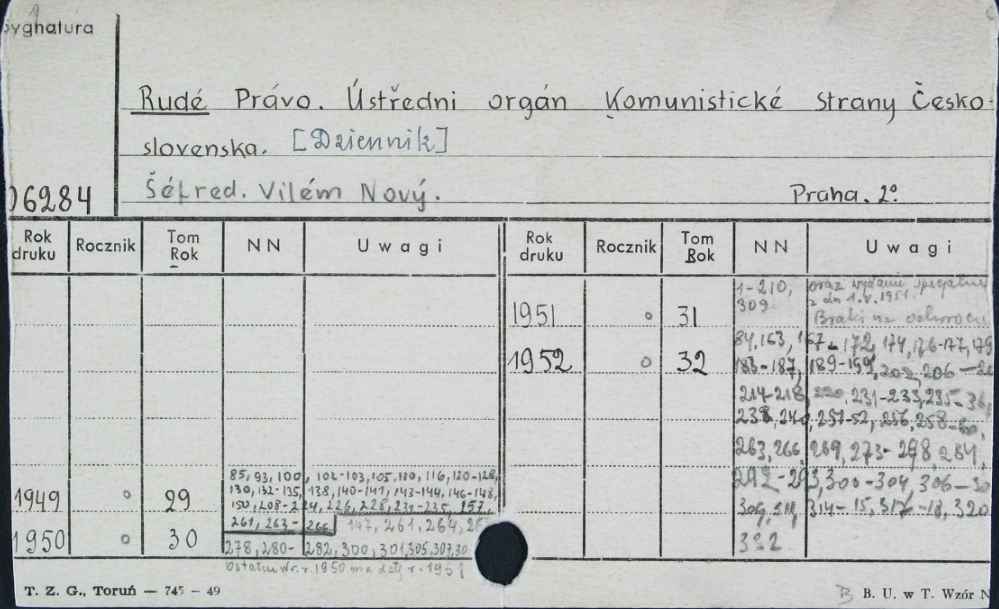 sygnatura
Rudé Právo. Ústředni orgán Komunistické strany Česko-
slovenska. [Dziennik]
06284
Šéfred. Vilém Nový.
Praha. 2°
Rok druku Rocznik Tom Rok NN Uwagi Rok druku Rocznik Tom Rok NN Uwagi
1-210, oraz wydanie specjalne
309 z dn 1.V.1951
1951 o 31 Braki na odwrocie
84, 163, 167-172, 174, 176-177, 179
1952 o 32 183-187, 189-199, 202, 206-
214-218, 220, 231-233, 235-36,
238, 240, 251-52, 256, 258-60,
263, 266, 269, 273-278, 284,
85, 93, 100, 102-103, 105, 110, 116, 120-128,
292-293, 300-304, 306-30
130, 132-135, 138, 140-141, 143-144, 146-148,
1949 o 29 150, 208-224, 226, 228, 231-235, 257,
309, 311, 314-15, 317-18, 320
261, 263-266 147, 261, 264,
1950 o 30 278, 280-282, 300, 301, 305, 307, 30
322
Ostatni Nr. r. 1950 ma datę r. 1951
T. Z. G., Toruń — 745 - 49
B B. U. w T. Wzór N